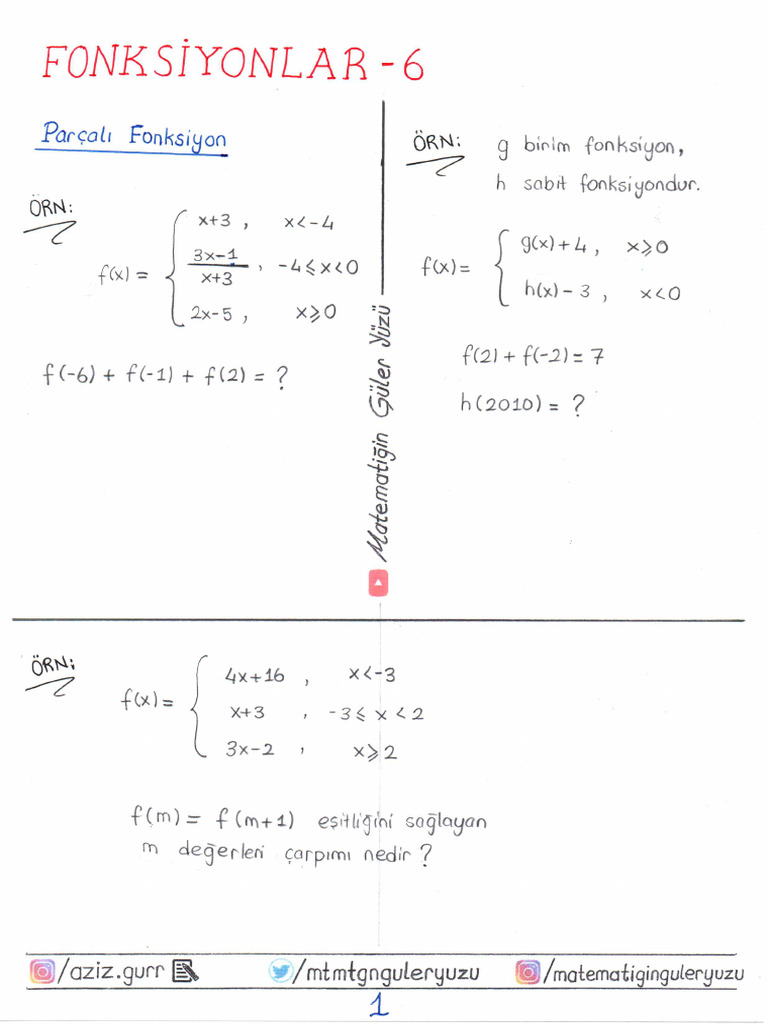 FONKSİYONLAR - 6
Parçalı Fonksiyon
ÖRN:
f(x) =
x+3 , x<-4
3x-1
x+3 , -4⩽x<0
2x-5 , x⩾0
f(-6) + f(-1) + f(2) = ?
ÖRN:
g birim fonksiyon,
h sabit fonksiyondur.
f(x) =
g(x)+4 , x⩾0
h(x)-3 , x<0
f(2) + f(-2) = 7
h(2010) = ?
Matematiğin Güler Yüzü
ÖRN:
f(x) =
4x+16 , x<-3
x+3 , -3⩽ x < 2
3x-2 , x⩾2
f(m) = f(m+1) eşitliğini sağlayan
m değerleri çarpımı nedir ?
/aziz.gurr /mtmtgnguleryuzu /matematiginguleryuzu
1